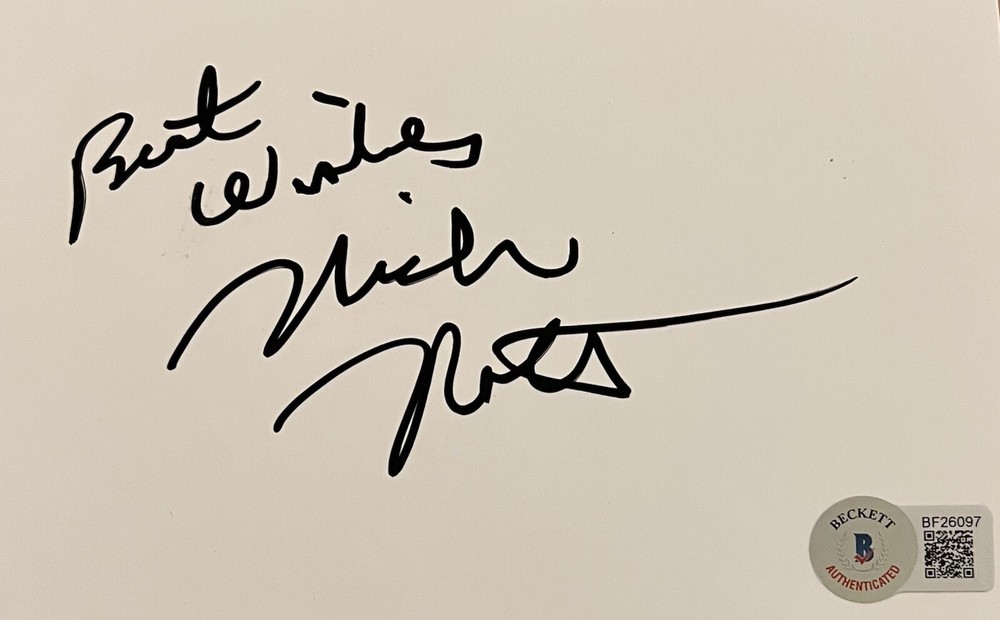 Best
Wishes
Nick
Nolte
BECKETT
B
AUTHENTICATED
BF26097